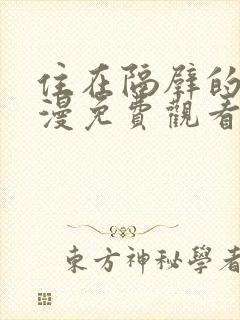 住在隔壁的
漫免費觀看
東方神秘學者